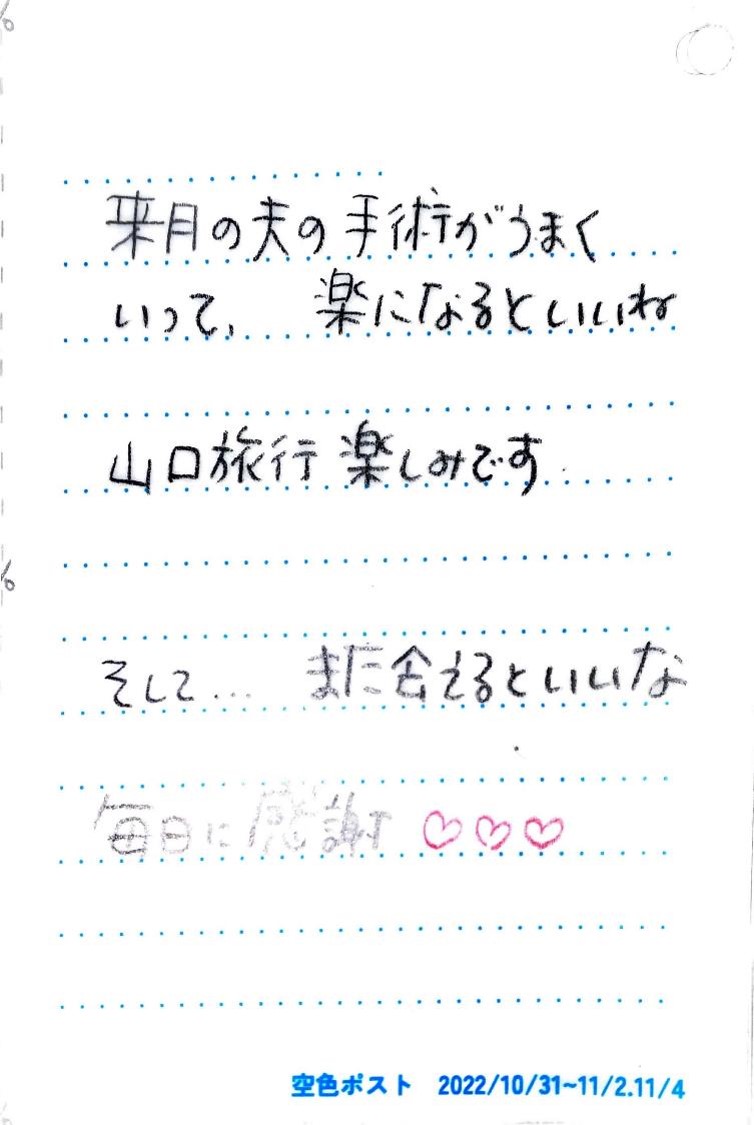 来月の夫の手術がうまく
いって、 楽になるといいね
山口旅行 楽しみです
そして... また会えるといいな
毎日に感謝 ♡♡♡
空色ポスト 2022/10/31~11/2.11/4